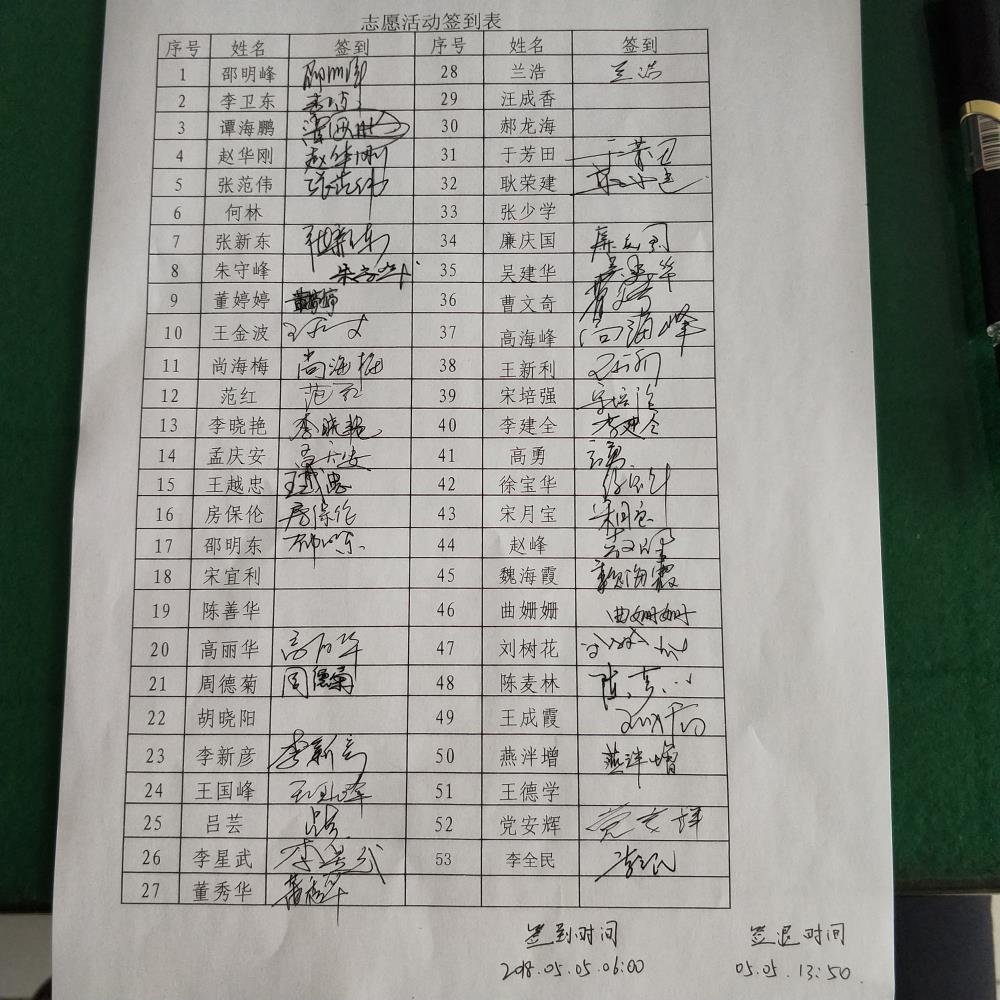 志愿活动签到表
序号 姓名 签到 序号 姓名 签到
1 邵明峰 28 兰浩 兰浩
2 李卫东 29 汪成香
3 谭海鹏 30 郝龙海
4 赵华刚 赵华刚 31 于芳田
5 张范伟 张范伟 32 耿荣建
6 何林 33 张少学
7 张新东 张新东 34 廉庆国
8 朱守峰 朱守峰 35 吴建华
9 董婷婷 董婷婷 36 曹文奇
10 王金波 37 高海峰 高海峰
11 尚海梅 尚海梅 38 王新利
12 范红 范红 39 宋培强
13 李晓艳 李晓艳 40 李建全 李建全
14 孟庆安 41 高勇
15 王越忠 42 徐宝华
16 房保伦 房保伦 43 宋月宝
17 邵明东 44 赵峰
18 宋宜利 45 魏海霞 魏海霞
19 陈善华 46 曲姗姗 曲姗姗
20 高丽华 高丽华 47 刘树花
21 周德菊 周德菊 48 陈麦林
22 胡晓阳 49 王成霞
23 李新彦 李新彦 50 燕泮增 燕泮增
24 王国峰 51 王德学
25 吕芸 52 党安辉 党安辉
26 李星武 53 李全民
27 董秀华
签到时间 签退时间
2018.05.05.06:00 05.05.13:50